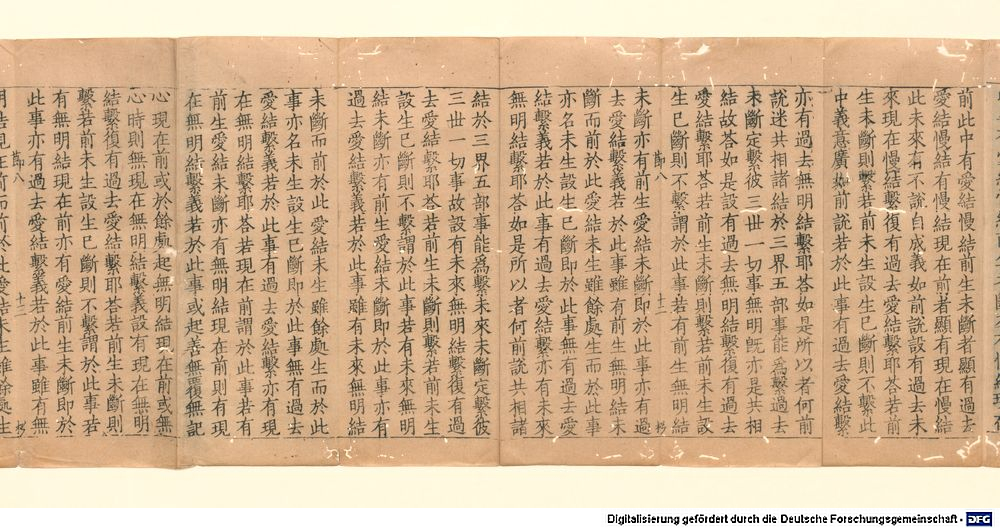 前此中有愛結慢結前生未斷者顯有過去
愛結慢結有慢結現在前者顯有現在慢結
此未來有不說自成義如前說設有過去未
來現在慢結繫復有過去愛結繫耶荅若前
生未斷則繫若前未生設生已斷則不繫此
中義意廣如前說若於此事有過去愛結繫
亦有過去無明結繫耶荅如是所以者何前
說迷共相諸結於三界五部事能爲繫過去
未斷定繫彼三世一切事無明旣亦是共相
結故荅如是設有過去無明結繫復有過去
愛結繫耶荅若前生未斷則繫若前未生設
生已斷則不繫謂於此事若有前生無明結
節八 十二
未斷亦有前生愛結未斷即於此事亦有過
去愛結繫義若於此事雖有前生無明結未
斷而前於此愛結未生雖餘處生而於此事
亦名未生設生已斷即於此事無有過去愛
結繫義若於此事有過去愛結繫亦有未來
無明結繫耶荅如是所以者何前說共相諸
結於三界五部事能爲繫未來未斷定繫彼
三世一切事故設有未來無明結繫復有過
去愛結繫耶荅若前生未斷則繫若前未生
設生已斷則不繫謂於此事若有未來無明
結未斷亦有前生愛結未斷即於此事亦有
過去愛結繫義若於此事雖有未來無明結
未斷而前於此愛結未生雖餘處生而於此
事亦名未生設生已斷即於此事無有過去
愛結繫義若於此事有過去愛結繫亦有現
在無明結繫耶荅若現在前謂於此事若有
前生愛結未斷亦有無明結現在前則有現
在無明結繫義若於此事或起善無覆無記
心現在前或於餘處起無明結現在前或無
心時則無現在無明結繫義設有現在無明
結繫復有過去愛結繫耶荅若前生未斷則
繫若前未生設生已斷則不繫謂於此事若
有無明結現在前亦有愛結前生未斷即於
此事亦有過去愛結繫義若於此事雖有無
節八 十三
Digitalisierung gefördert durch die Deutsche Forschungsgemeinschaft - DFG